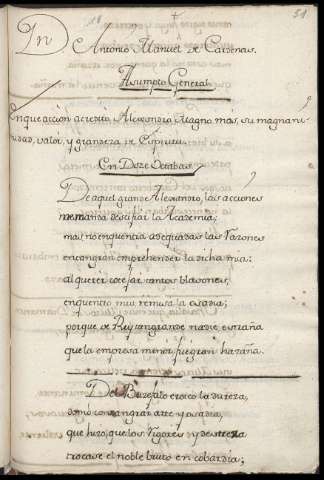 51
Dn
De Antonio Manuel de Cardenas.
Asumpto General
En que acción acredito Alexandro Magno, más, su magnani-
midad, valor, y grandeza de Espiritu.
En Doze Octabas
De aquel grande Alexandro, las acciones
me manda descifrar la Academia;
mas no encuentra adequadas las razones
en
al querer cotejar tantos blasones,
encuentro mui remisa la osadia;
porque de Rey tan grande nadie estraña
que la empresa menor fuese gran hazaña.
Del Buzefalo eroico la dureza,
domó con sangrar arte y osadia,
que hizo, que los vigores, y destreza
trocase el noble bruto en cobardia;